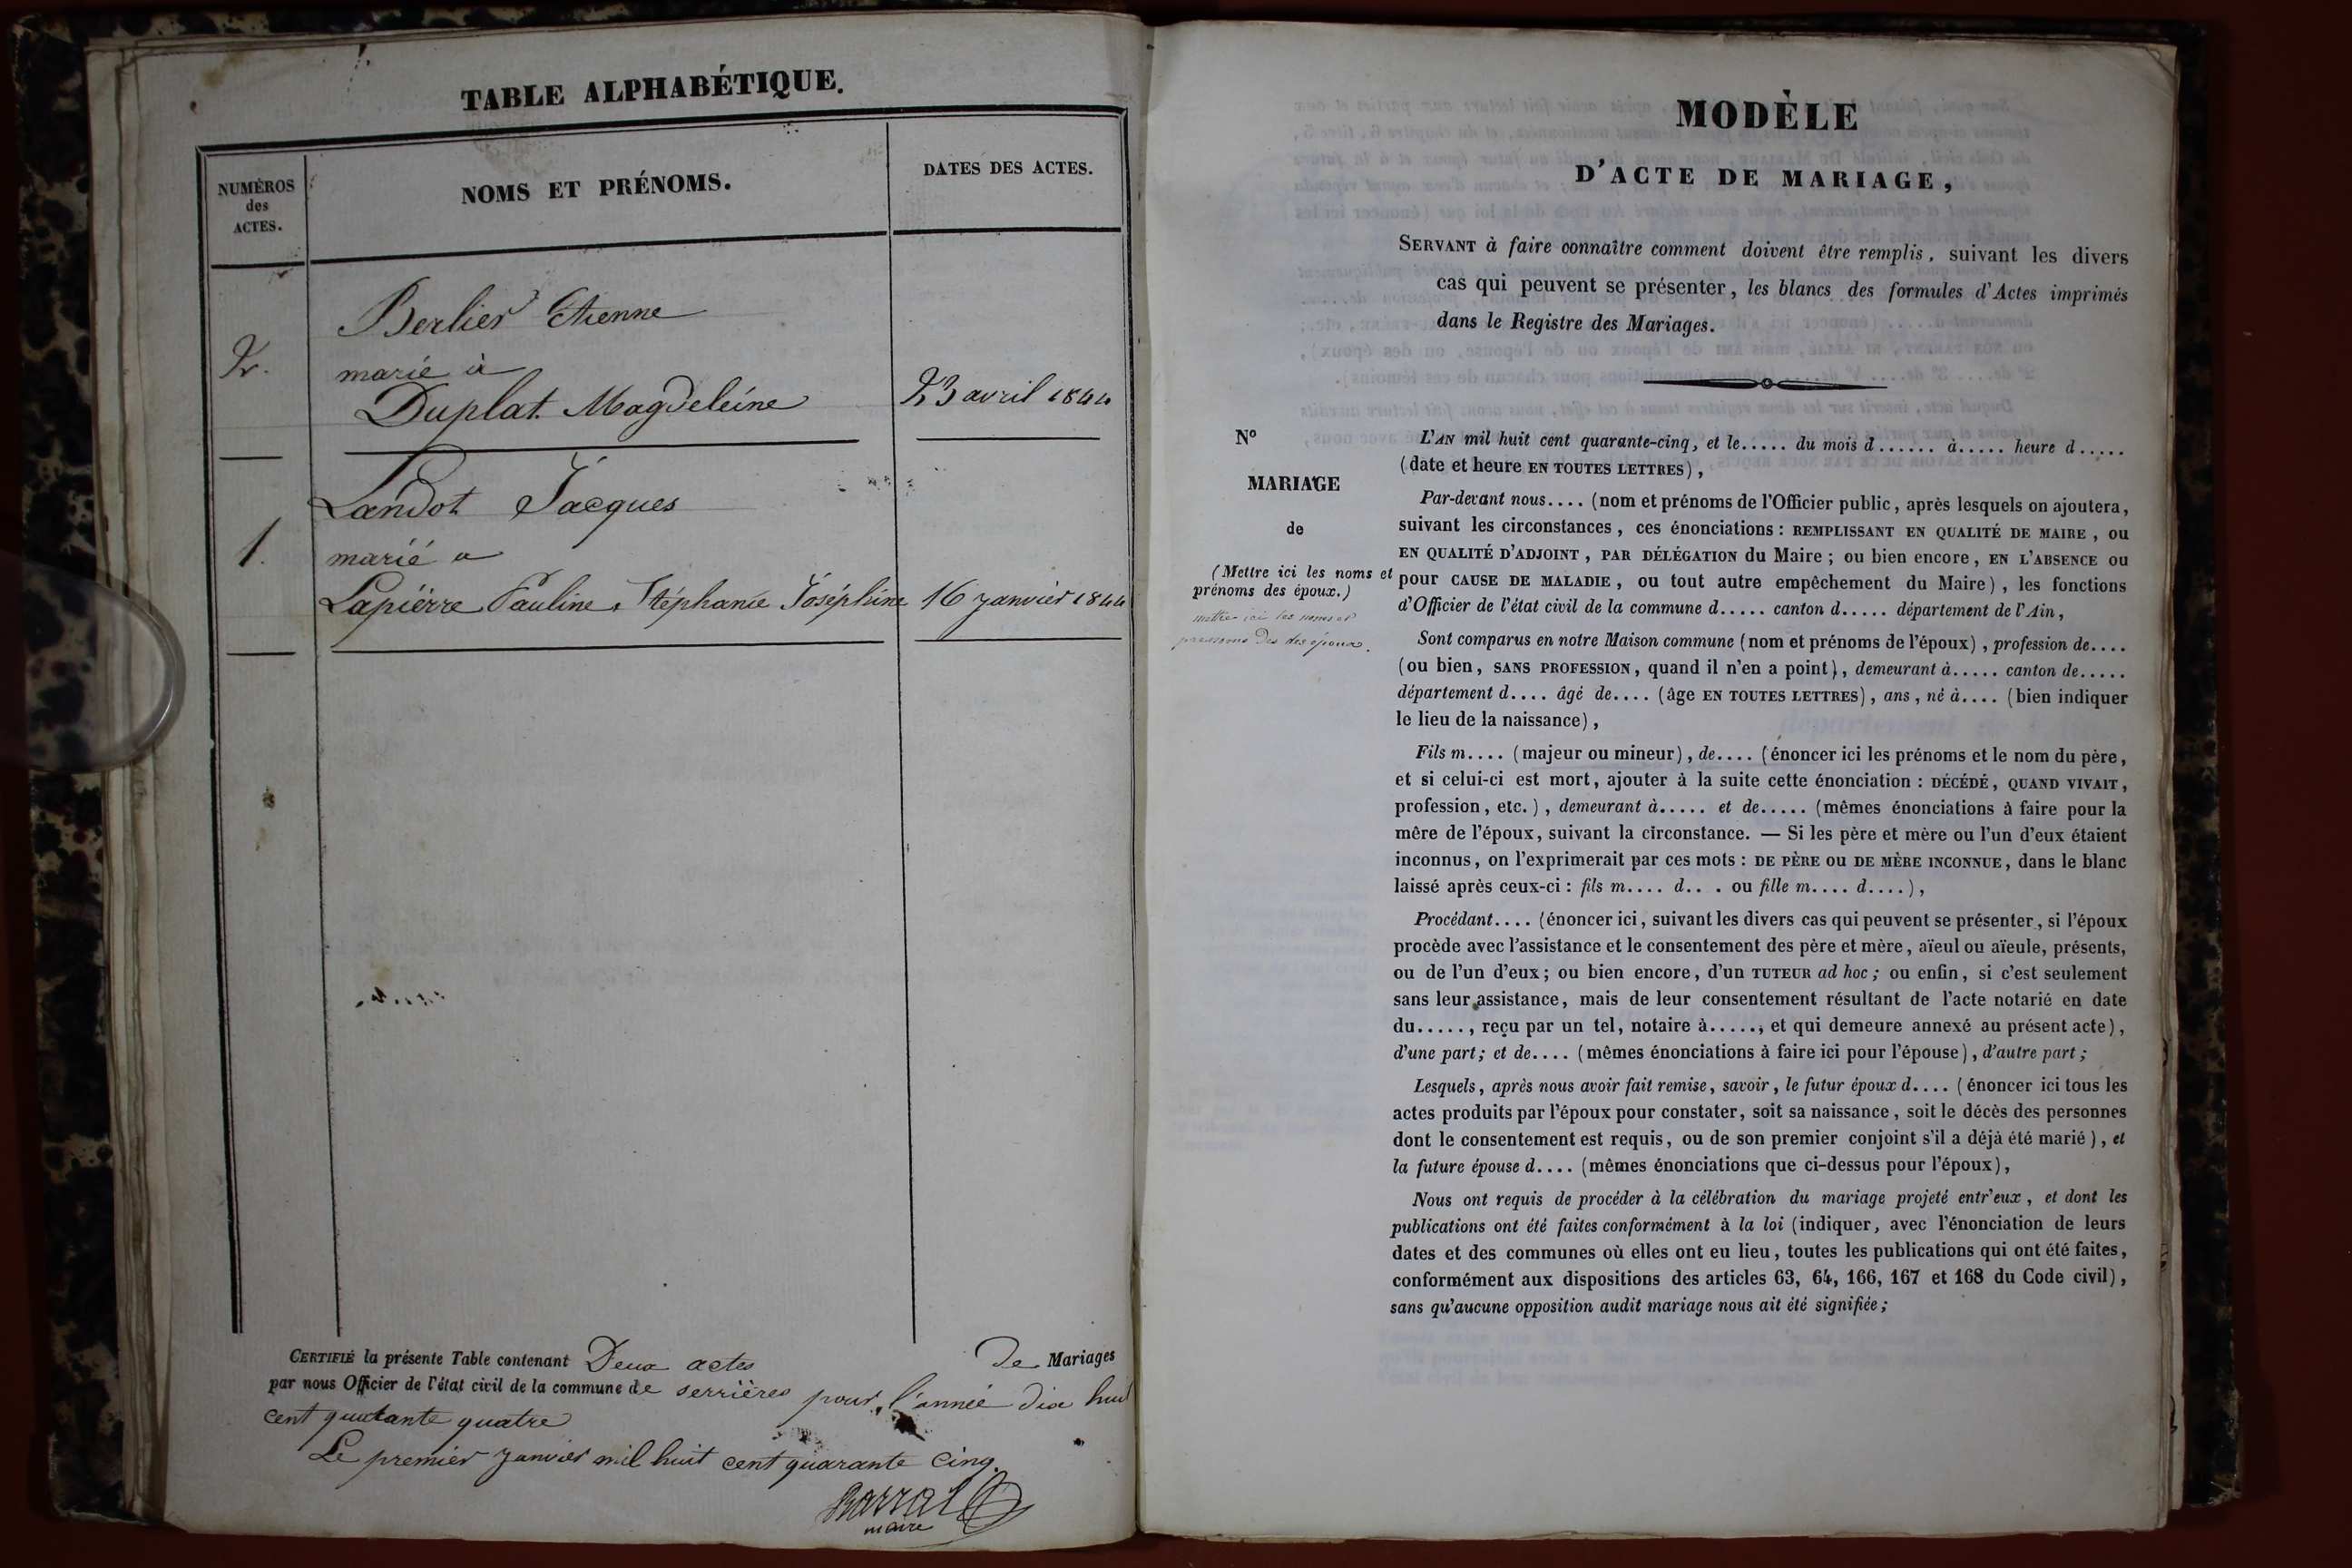 TABLE ALPHABÉTIQUE.
NUMÉROS
des
ACTES.
NOMS ET PRÉNOMS.
DATES DES ACTES.
Berlier Etienne
2.
marié à
Duplat Magdeleine
23 avril 1844
Landot Jacques
1.
marié a
Lapiérre Pauline Stéphanie Joséphine
16 janvier 1844
CERTIFIÉ la présente Table contenant Deux actes de Mariages
par nous Officier de l'état civil de la commune de serrières pour l'année dix huit
cent quatante quatre
Le premier janvier mil huit cent quarante cinq.
Barral
maire
MODÈLE
D'ACTE DE MARIAGE,
SERVANT à faire connaître comment doivent être remplis, suivant les divers
cas qui peuvent se présenter, les blancs des formules d'Actes imprimés
dans le Registre des Mariages.
N°
MARIAGE
de
(Mettre ici les noms et
prénoms des époux.)
mettre ici les noms et
prenoms des des époux.
L'AN mil huit cent quarante-cinq, et le..... du mois d...... à..... heure d.....
(date et heure EN TOUTES LETTRES),
Par-devant nous.... (nom et prénoms de l'Officier public, après lesquels on ajoutera,
suivant les circonstances, ces énonciations : REMPLISSANT EN QUALITÉ DE MAIRE, ou
EN QUALITÉ D'ADJOINT, PAR DÉLÉGATION du Maire ; ou bien encore, EN L'ABSENCE ou
pour CAUSE DE MALADIE, ou tout autre empêchement du Maire), les fonctions
d'Officier de l'état civil de la commune d..... canton d..... département de l'Ain,
Sont comparus en notre Maison commune (nom et prénoms de l'époux), profession de....
(ou bien, SANS PROFESSION, quand il n'en a point), demeurant à..... canton de.....
département d.... âgé de.... (âge EN TOUTES LETTRES), ans, né à.... (bien indiquer
le lieu de la naissance),
Fils m.... (majeur ou mineur), de.... (énoncer ici les prénoms et le nom du père,
et si celui-ci est mort, ajouter à la suite cette énonciation : DÉCÉDÉ, QUAND VIVAIT,
profession, etc.), demeurant à..... et de..... (mêmes énonciations à faire pour la
mère de l'époux, suivant la circonstance. — Si les père et mère ou l'un d'eux étaient
inconnus, on l'exprimerait par ces mots : DE PÈRE ou DE MÈRE INCONNUE, dans le blanc
laissé après ceux-ci : fils m.... d.. . ou fille m.... d....),
Procédant.... (énoncer ici, suivant les divers cas qui peuvent se présenter, si l'époux
procède avec l'assistance et le consentement des père et mère, aïeul ou aïeule, présents,
ou de l'un d'eux; ou bien encore, d'un TUTEUR ad hoc ; ou enfin, si c'est seulement
sans leur assistance, mais de leur consentement résultant de l'acte notarié en date
du....., reçu par un tel, notaire à....., et qui demeure annexé au présent acte),
d'une part; et de.... (mêmes énonciations à faire ici pour l'épouse), d'autre part ;
Lesquels, après nous avoir fait remise, savoir, le futur époux d.... (énoncer ici tous les
actes produits par l'époux pour constater, soit sa naissance, soit le décès des personnes
dont le consentement est requis, ou de son premier conjoint s'il a déjà été marié), et
la future épouse d.... (mêmes énonciations que ci-dessus pour l'époux),
Nous ont requis de procéder à la célébration du mariage projeté entr'eux, et dont les
publications ont été faites conformément à la loi (indiquer, avec l'énonciation de leurs
dates et des communes où elles ont eu lieu, toutes les publications qui ont été faites,
conformément aux dispositions des articles 63, 64, 166, 167 et 168 du Code civil),
sans qu'aucune opposition audit mariage nous ait été signifiée ;